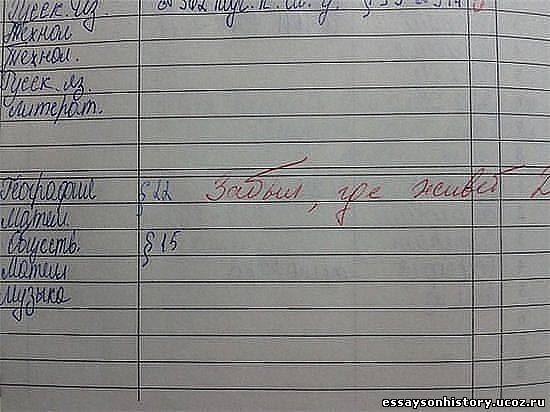 Русск. яз.
Технол
Технол.
Русск яз.
Литерат.
География § 22 Забыл, где живёт
Матем.
Обществ. § 15
Матем
Музыка
essaysonhistory.ucoz.ru